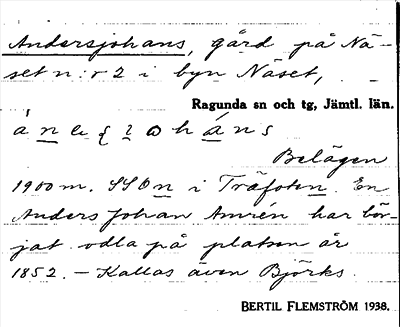 Andersjohans, gård på Nä-
set n:r 2 i byn Näset,
Ragunda sn och tg, Jämtl. län.
Belägen
1900 m. SSO n i Träfoten. En
Anders Johan Amrén har bör-
jat odla på platsen år
1852. – Kallas även Björks.
BERTIL FLEMSTRÖM 1938.